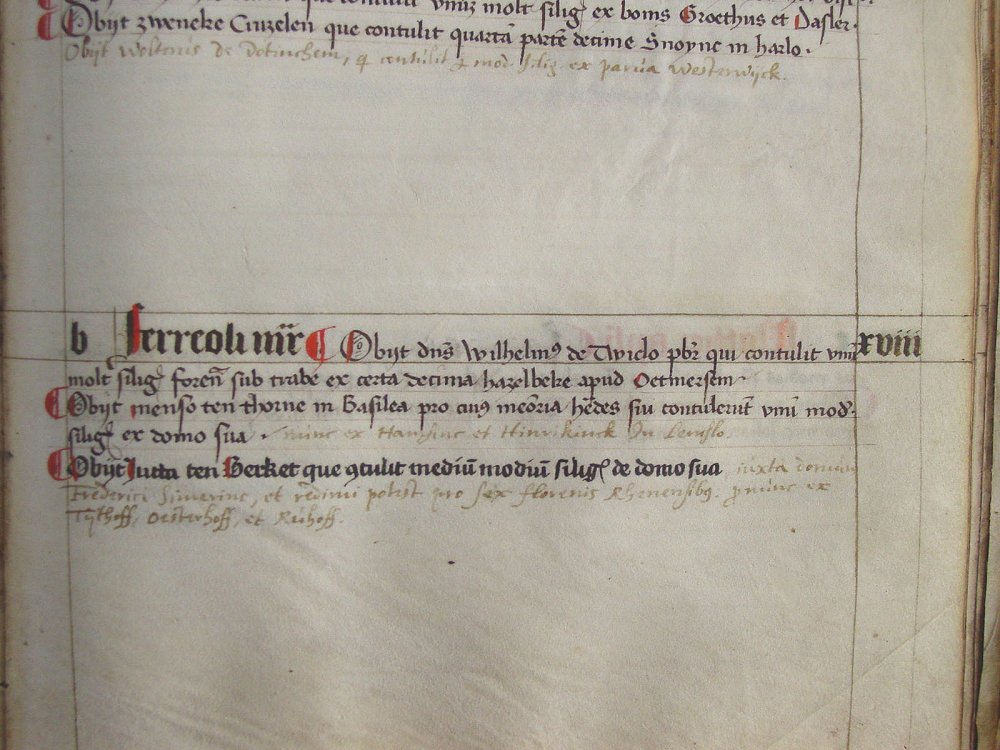 que contulit vnuȝ molt siligꝭ ex bonis Groethus et Dasler.
Obijt zweneke Cuzelen que contulit quartā partē decime Snoync in harlo.
Obijt Wolterus de Dotinchem, q contulit mod. silig. ex parua Westerwijck.
b Ferreoli mr̄r Obijt dn̄s Wilhelmꝰ de Twiclo pbr̄ qui contulit vnuȝ xviii
molt siligꝭ foren̄ sub trabe ex certa decima hazelbeke apud Oetmersem
Obijt menso ten thorne in Basilea pro cuiꝰ meōria hēdes sui contulerūt vnū mod.
siligꝭ ex domo sua. nunc ex et Hinrikinck In Lemslo
Obijt Jutta ten Gerket que ꝯtulit mediū modiū siligꝭ de domo sua iuxta domum
Frederici et redimi potest pro sex florenis Rhenensibꝰ. nunc ex
Tijthoff, Oesterhoff, et Ruhoff.